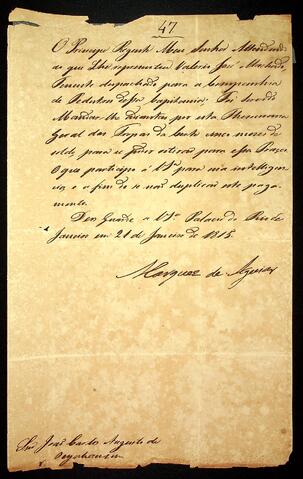 47
O Principe Regente Meu Senhor Attendendo
ao que Lhe representou Valerio José Machado,
Tenente despachado para a Companhia
de Pedestres dessa Capitania: Foi servido
Mandar-lhe adiantar por esta Thesouraria
Geral das Tropas da Corte mezes de
soldo, para se poder para essa Praça:
O que participo a V.Sª para sua intelligen-
cia, e a fim de se não duplicar este paga-
mento.
Deos Guarde a V.Sª Palacio do Rio de
Janeiro em 21 de Janeiro de 1815.
Marquez de Aguiar
Snr. João Carlos Augusto de
Oeynhausen